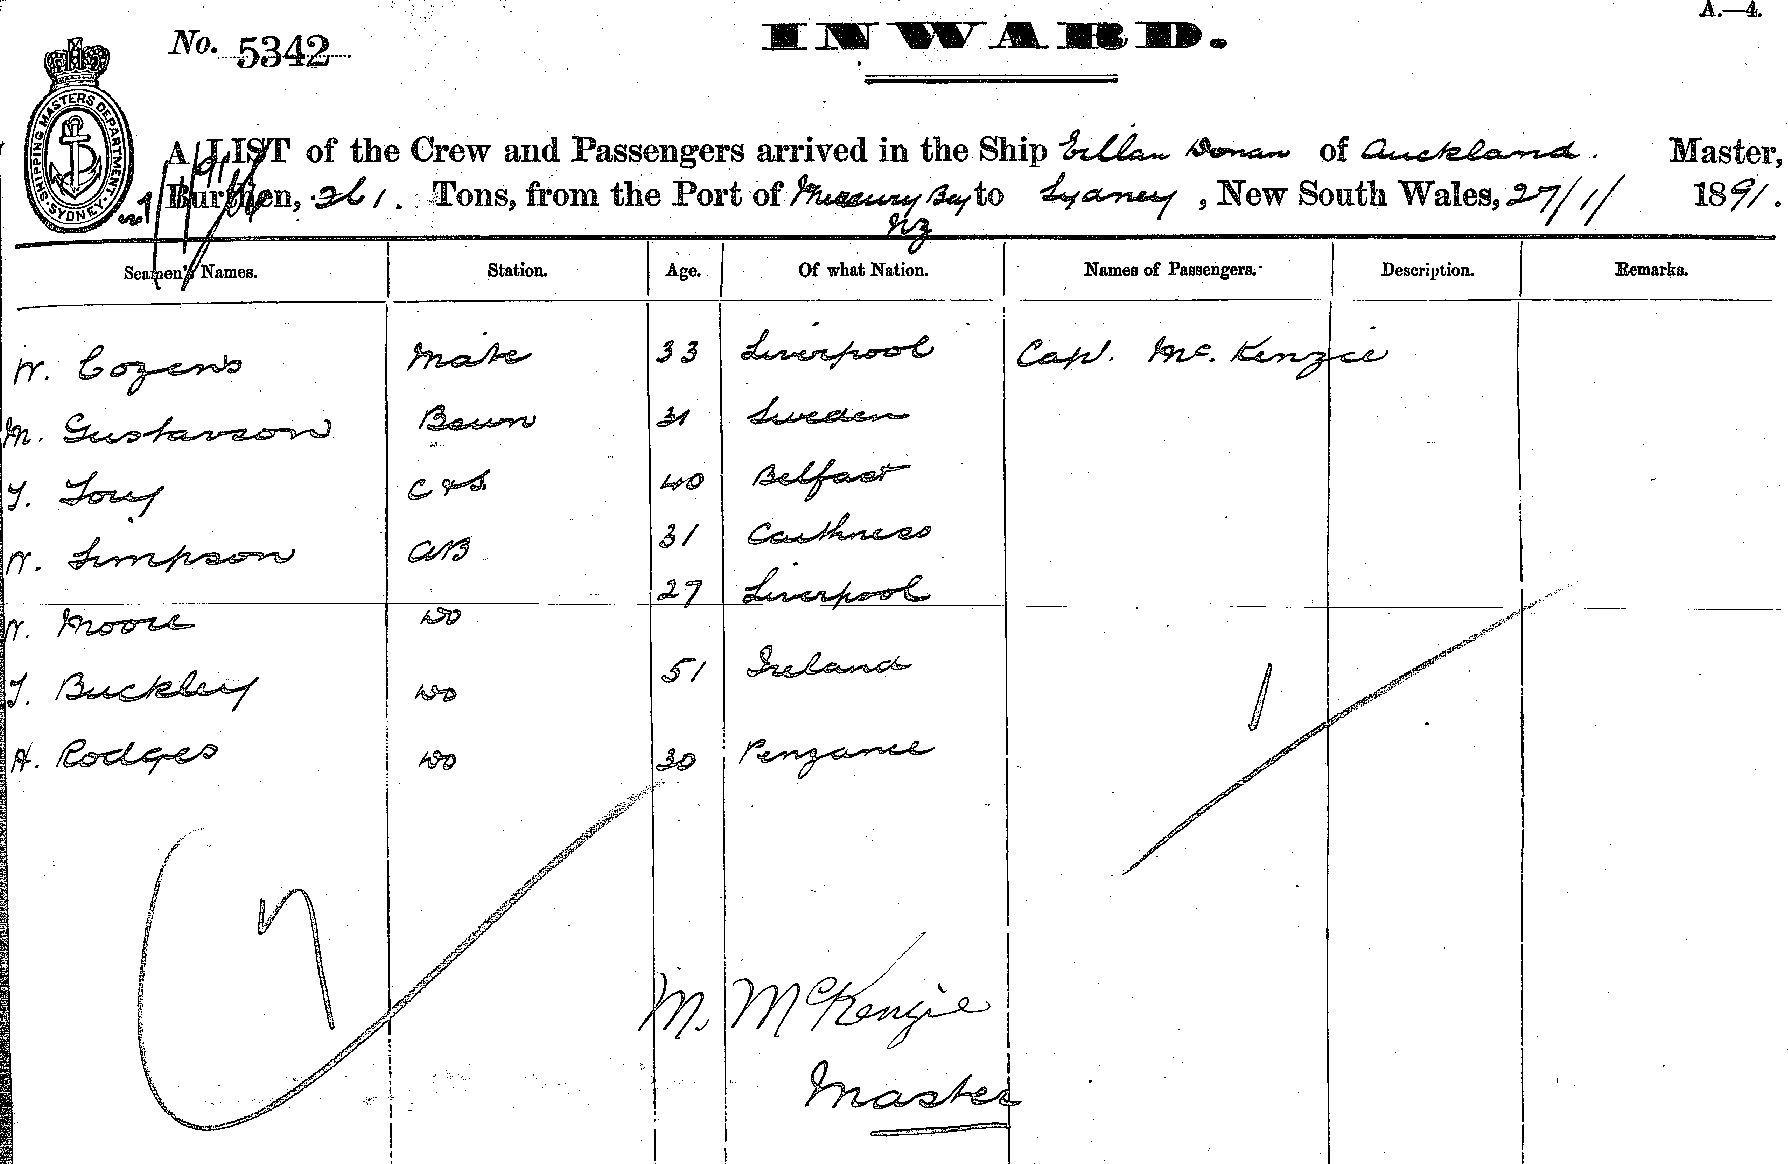 A.—4.
No. 5342
INWARD.
SHIPPING MASTERS DEPARTMENT SYDNEY
A LIST of the Crew and Passengers arrived in the Ship Eillan Donan of Auckland. Master,
Burthen, 261. Tons, from the Port of Mercury Bay to Sydney, New South Wales, 27/1/ 1891.
NZ
Seamen's Names. Station. Age. Of what Nation. Names of Passengers. Description. Remarks.
W. Cozens Mate 33 Liverpool Capt. McKenzie
M. Gustavson Bsun 31 Sweden
T. C & S 40 Belfast
W. Simpson AB 31 Caithness
W. Moore Do 27 Liverpool
T. Buckley Do 51 Ireland
H. Rodges Do 30 Penzance
1
7
M. McKenzie
Master